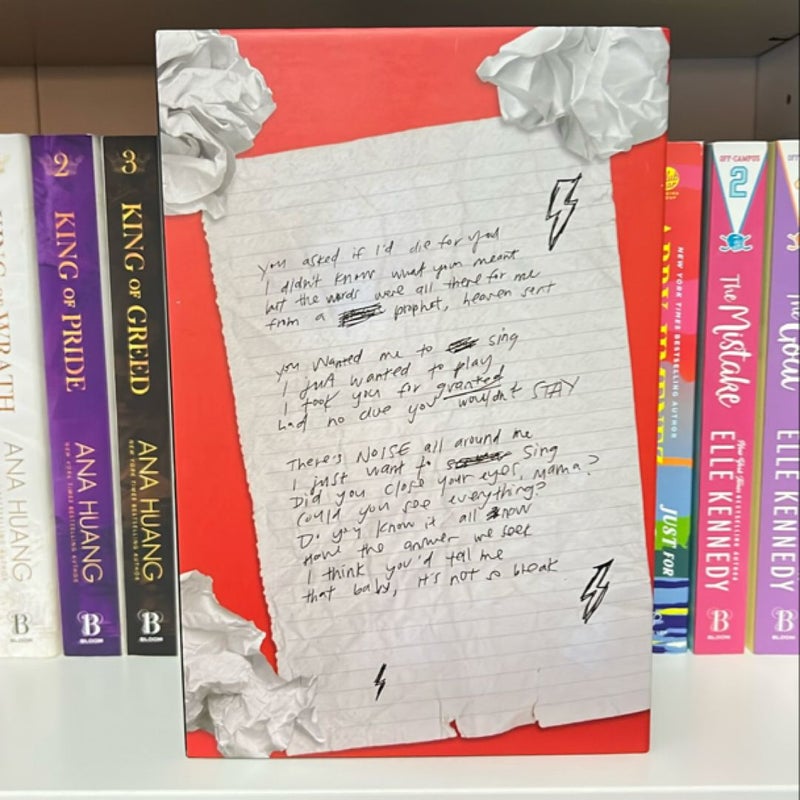 you asked if I'd die for you
I didn't know what you meant
but the words were all there for me
from a prophet, heaven sent
you wanted me to sing
I just wanted to play
I took you for granted
had no clue you wouldn't STAY
There's NOISE all around me
I just want to sing
Did you close your eyes, Mama?
Could you see everything?
Do you know it all now
Have the answer we seek
I think you'd tell me
that baby, it's not so bleak
KING OF WRATH
ANA HUANG
2
KING OF PRIDE
ANA HUANG
NEW YORK TIMES BESTSELLING AUTHOR
B
BLOOM
3
KING OF GREED
ANA HUANG
NEW YORK TIMES BESTSELLING AUTHOR
B
BLOOM
NEW YORK TIMES BESTSELLING AUTHOR
JUST FOR
OFF-CAMPUS
2
The Mistake
New York Times BESTSELLING AUTHOR
ELLE KENNEDY
B
BLOOM
The Goal
ELLE KENNEDY
B